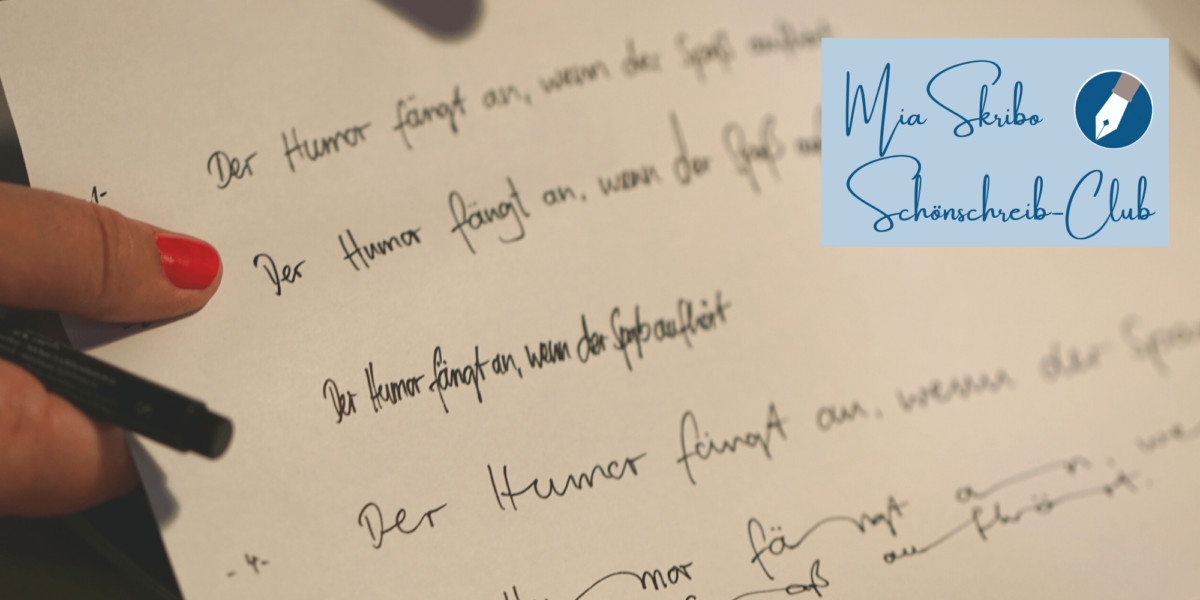 Mia Skribo
Schönschreib-Club
-1-
Der Humor fängt an, wenn der Spaß aufhört
Der Humor fängt an, wenn der Spaß
Der Humor fängt an, wenn der Spaß aufhört
Der Humor fängt an, wenn der
-4-
Humor fängt an, we
aufhört.